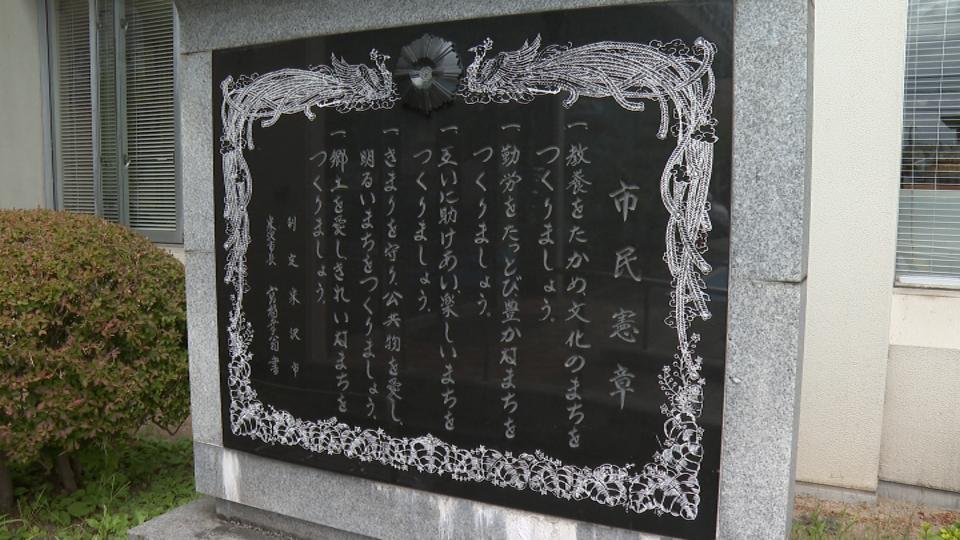 市民憲章
一教養をたかめ文化のまちを
つくりましょう。
一勤労をたっとび豊かなまちを
つくりましょう。
一互いに助けあい楽しいまちを
つくりましょう。
一きまりを守り公共物を愛し、
明るいまちをつくりましょう。
一郷土を愛しきれいなまちを
つくりましょう。
制定米沢市
米沢市長
書